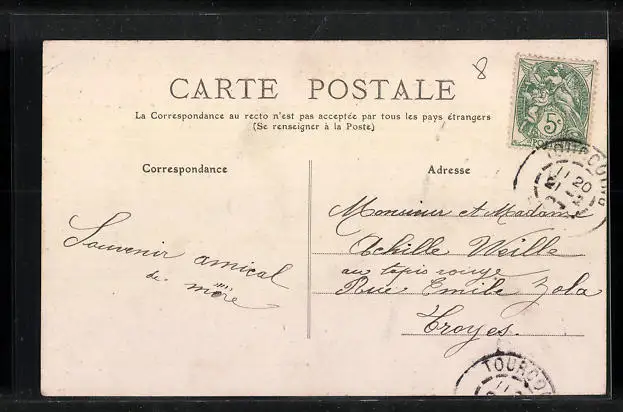 8
CARTE POSTALE
La Correspondance au recto n'est pas acceptée par tous les pays étrangers
(Se renseigner à la Poste)
Correspondance
Adresse
5c
TOURCOING
11 20
Monsieur et Madame
Achille Weille
au tapis rouge
Rue Emile Zola
Troyes.
Souvenir amical
de
TOURCO
11